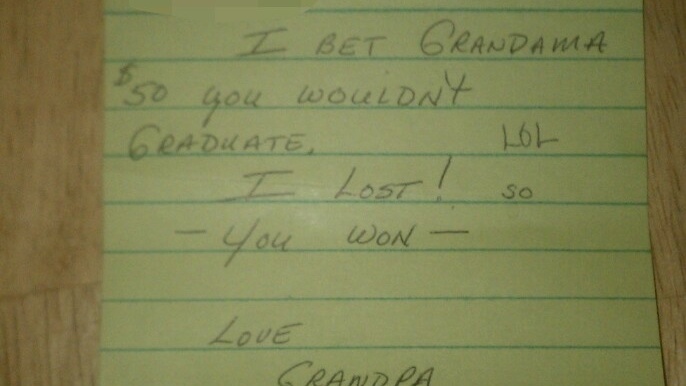 I BET GRANDAMA
$50 you WOULDN't
GRADUATE. LOL
I LOST! SO
- YOU WON -
LOVE
GRANDPA